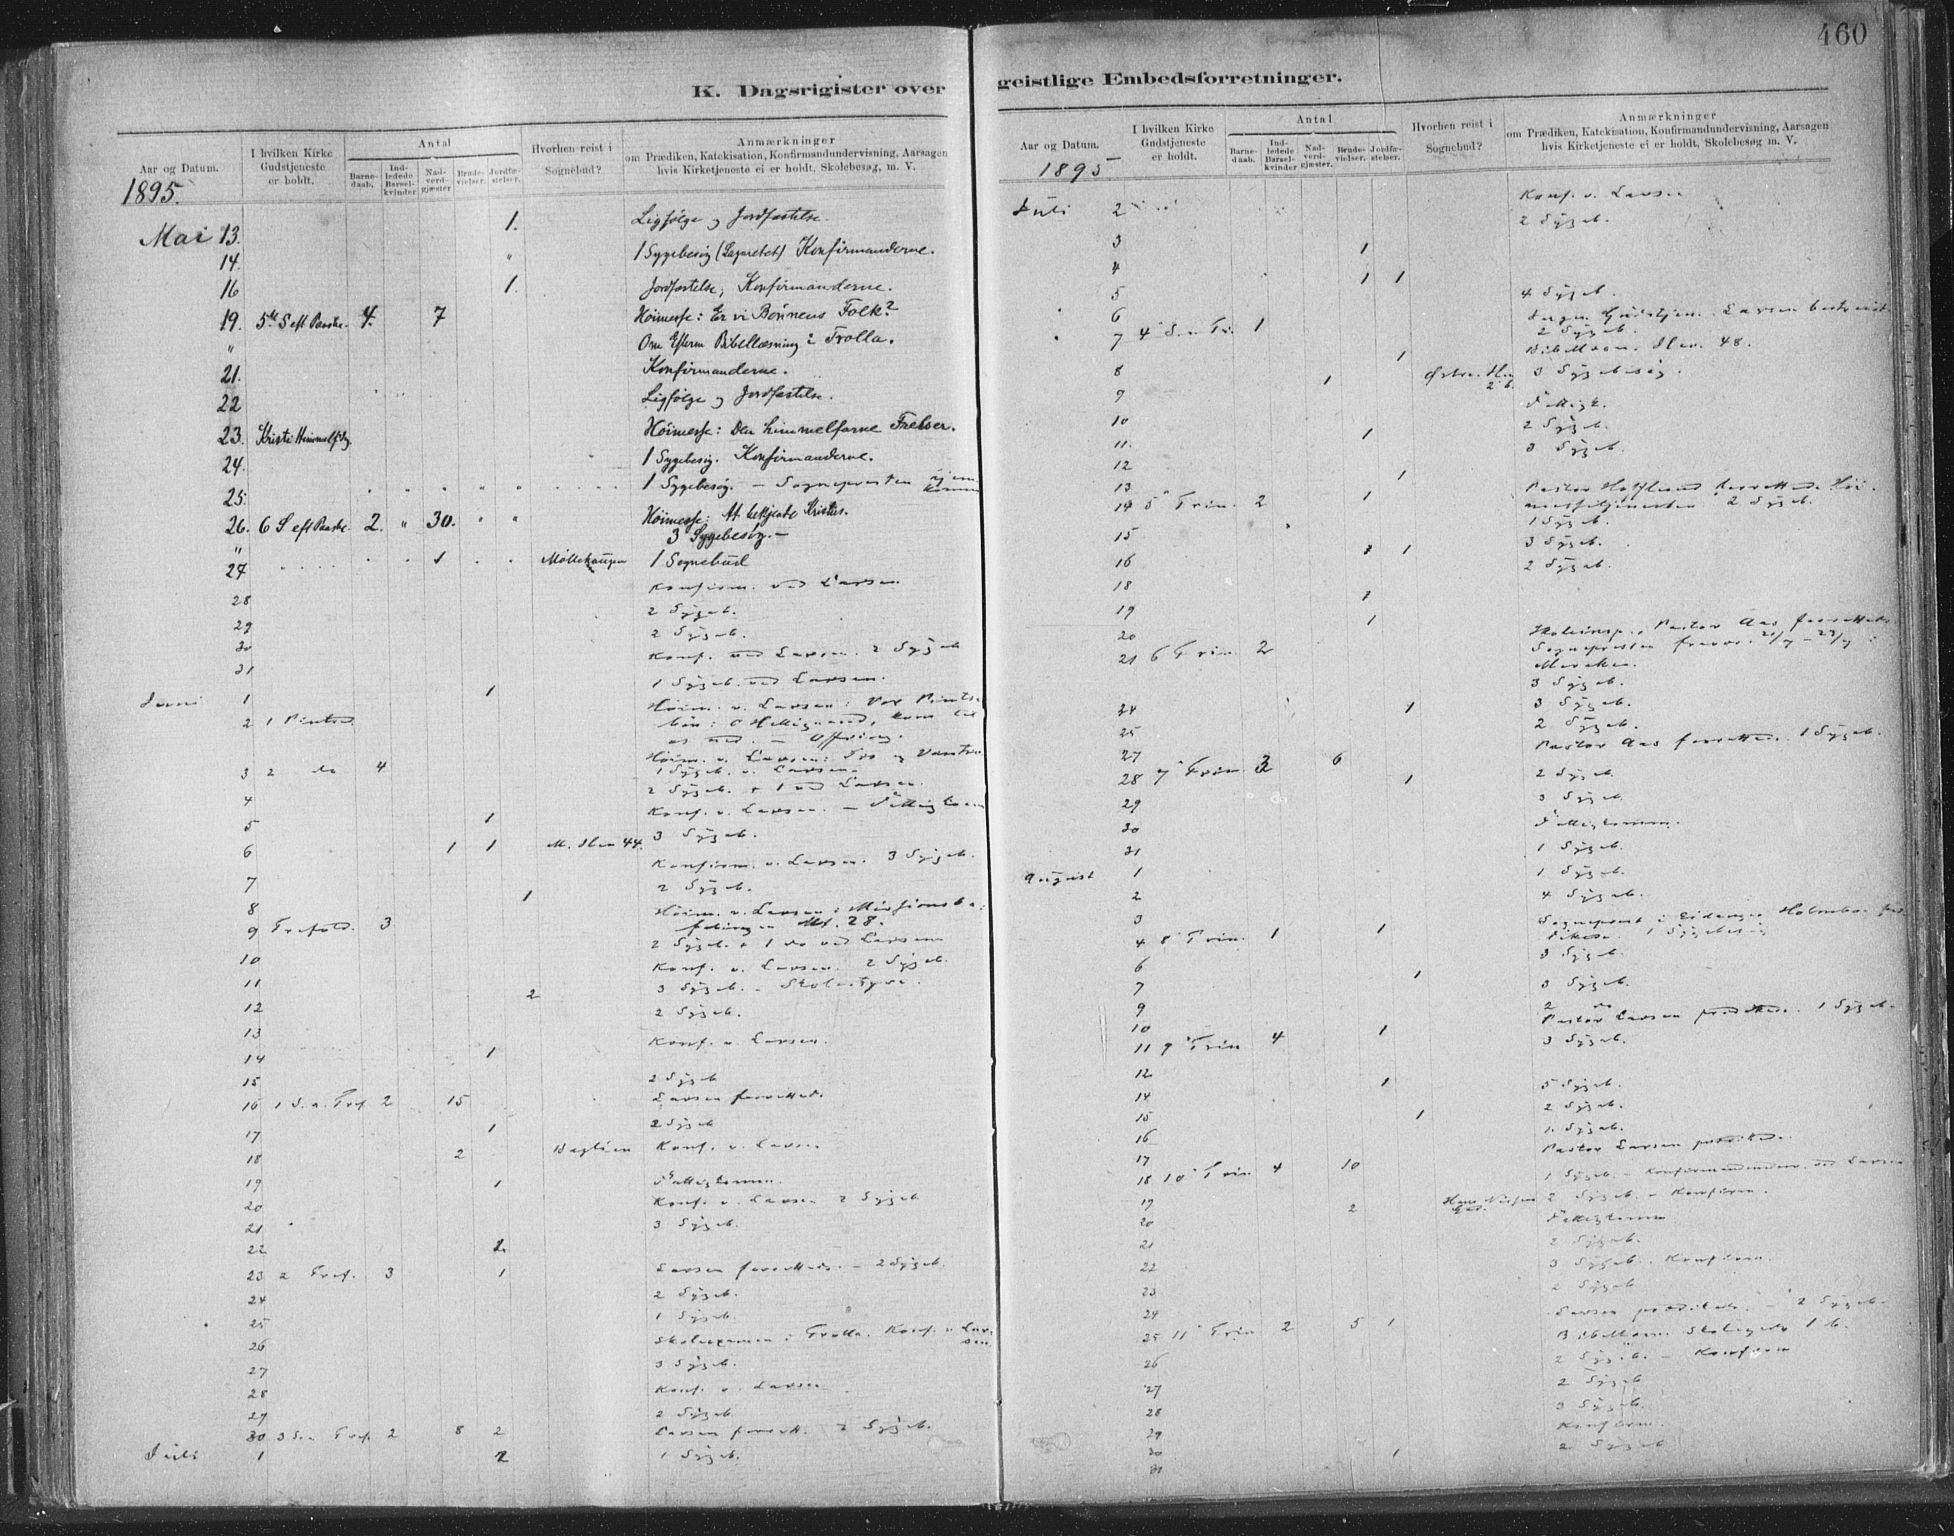 460
K. Dagsrigister over
Aar og Datum.
I hvilken Kirke Gudstjeneste er holdt.
Antal
Barne-daab.
Ind-ledede Barsel-kvinder
Nad-verd-gjæster
Brude-vielser.
Jordfæ-stelser.
Hvorhen reist i Sognebud?
Anmærkninger
om Prædiken, Katekisation, Konfirmandundervisning, Aarsagen
hvis Kirketjeneste ei er holdt, Skolebesøg, m. V.
1895.
Mai 13. 1. Ligfølge og Jordfæstelse.
14. " 1 Sygebesøg (Lazarettet) Konfirmanderne.
16 1. Jordfæstelse, Konfirmanderne.
19. 5te S eft Paaske. 4. 7 Høimesse: Er vi Bønnens Folk?
" Om Efterm Bibellæsning i Trolla.
21. Konfirmanderne.
22 Ligfølge og Jordfæstelse.
23. Kristi Himmelf. Høimesse: Den himmelfarne Frelser.
24. 1 Sygebesøg. Konfirmanderne.
25. 1 Sygebesøg. – Sognepresten
26. 6 S eft Paaske 2. " 30. " " Høimesse: At bekjende Kristus.
" 3 Sygebesøg. –
27 1 1 Sognebud
28 Konfirm. ved Larsen
29 2 Sygeb.
30 2 Sygeb.
31 Konf. ved Larsen. 2 Sygeb
Juni 1 1 1 Sygeb. ved Larsen.
2 1 Pintsed. Høim. v. Larsen: Vor Pintse
bøn: O Helligaand, kom til
os ned. – Offring.
3 2 do 4 Høim. v. Larsen:
1 Sygeb. v. Larsen.
4 2 Sygeb. + 1 ved Larsen.
5 1 Konf. v. Larsen. –
6 1 1 M. Ilen 44. 3 Sygeb.
7 Konfirm. v. Larsen. 3 Sygeb.
8 1 2 Sygeb.
9 Trefold. 3 Høim. v. Larsen: Missionsbe-
falingen Mt. 28.
10 2 Sygeb. + 1 do ved Larsen
11 Konf. v. Larsen. 2 Sygeb.
12 2 3 Sygeb. – Skolestyre.
13 2 Sygeb.
14 1 Konf. v. Larsen.
15 2 Sygeb
16 1 S. e. Tref. 2 15 Larsen forrettede.
17 1 2 Sygeb
18 2 Konf. v. Larsen
19 1 Fattigkomm.
20 Konf. v. Larsen 2 Sygeb
21 3 Sygeb.
22 2
23 2 Tref. 3 1 Larsen forrettede. – 2 Sygeb.
24 2 Sygeb.
25 1 Sygeb.
26 Skoleexamen i Trolla. Konf. v. Lar-
sen.
27 3 Sygeb.
28 Konf. v. Larsen
29 2 Sygeb
30 3 S. e Tref. 2 8 2 Larsen forrett. 2 Sygeb.
Juli 1 2 1 Sygeb.
geistlige Embedsforretninger.
Aar og Datum.
I hvilken Kirke Gudstjeneste er holdt.
Antal
Barne-daab.
Ind-ledede Barsel-kvinder
Nad-verd-gjæster.
Brude-vielser.
Jordfæ-stelser.
Hvorhen reist i Sognebud?
Anmærkninger
om Prædiken, Katekisation, Konfirmandundervisning, Aarsagen
hvis Kirketjeneste ei er holdt, Skolebesøg m. V.
1895
Juli 2 Konf. v. Larsen
2 Sygeb.
3 1
4 1 1
5 4 Sygeb.
6 2 Sygeb.
7 4 S. e Tr. 1 Ilen 48.
8 1 3 Sygebesøg.
9 1
10 2 Sygeb.
11. 1 3 Sygeb.
12
13 1
14 5 Trin. 2 1 2 Sygeb.
15 1 Sygeb.
3 Sygeb.
16 1 1 2 Sygeb.
18
19 1
20 1
21 6 Trin. 2 Skoleinsp. Pastor Aas forrettede
Meraker.
3 Sygeb.
24 1 3 Sygeb.
25 2 Sygeb.
27 Pastor Aas forrettede. 1 Sygeb.
28 7 Trin 3 6 2 Sygeb.
29 1 3 Sygeb.
30 Fattigkomm.
31 1 Sygeb.
August 1 1 Sygeb.
2 4 Sygeb.
3
4 8 Trin. 1 1 1 Sygebesøg
6 3 Sygeb.
7 1 3 Sygeb.
9 2 do
10 1 Pastor Larsen prædikede. 1 Sygeb.
11 9 Trin 4 3 Sygeb.
12
14 1 5 Sygeb.
15 1 2 Sygeb.
16 1. Sygeb.
17 Pastor Larsen prædikede.
18 10 Trin 4 10 1 Sygeb. – Konfirmanderne ved Larsen
19 2 Hans Nielsen 2 Sygeb. – Konfirm.
20 Fattigkomm
21 2 Sygeb.
22 3 Sygeb. Konfirm.
23 2 Sygeb
24 Larsen prædikede. – 2 Sygeb.
25 11 Trin 2 5 1
26 2 Sygeb. – Konfirm
27 2 Sygeb
28 3 Sygeb.
29 Konfirm.
30 1 2 Sygeb
31